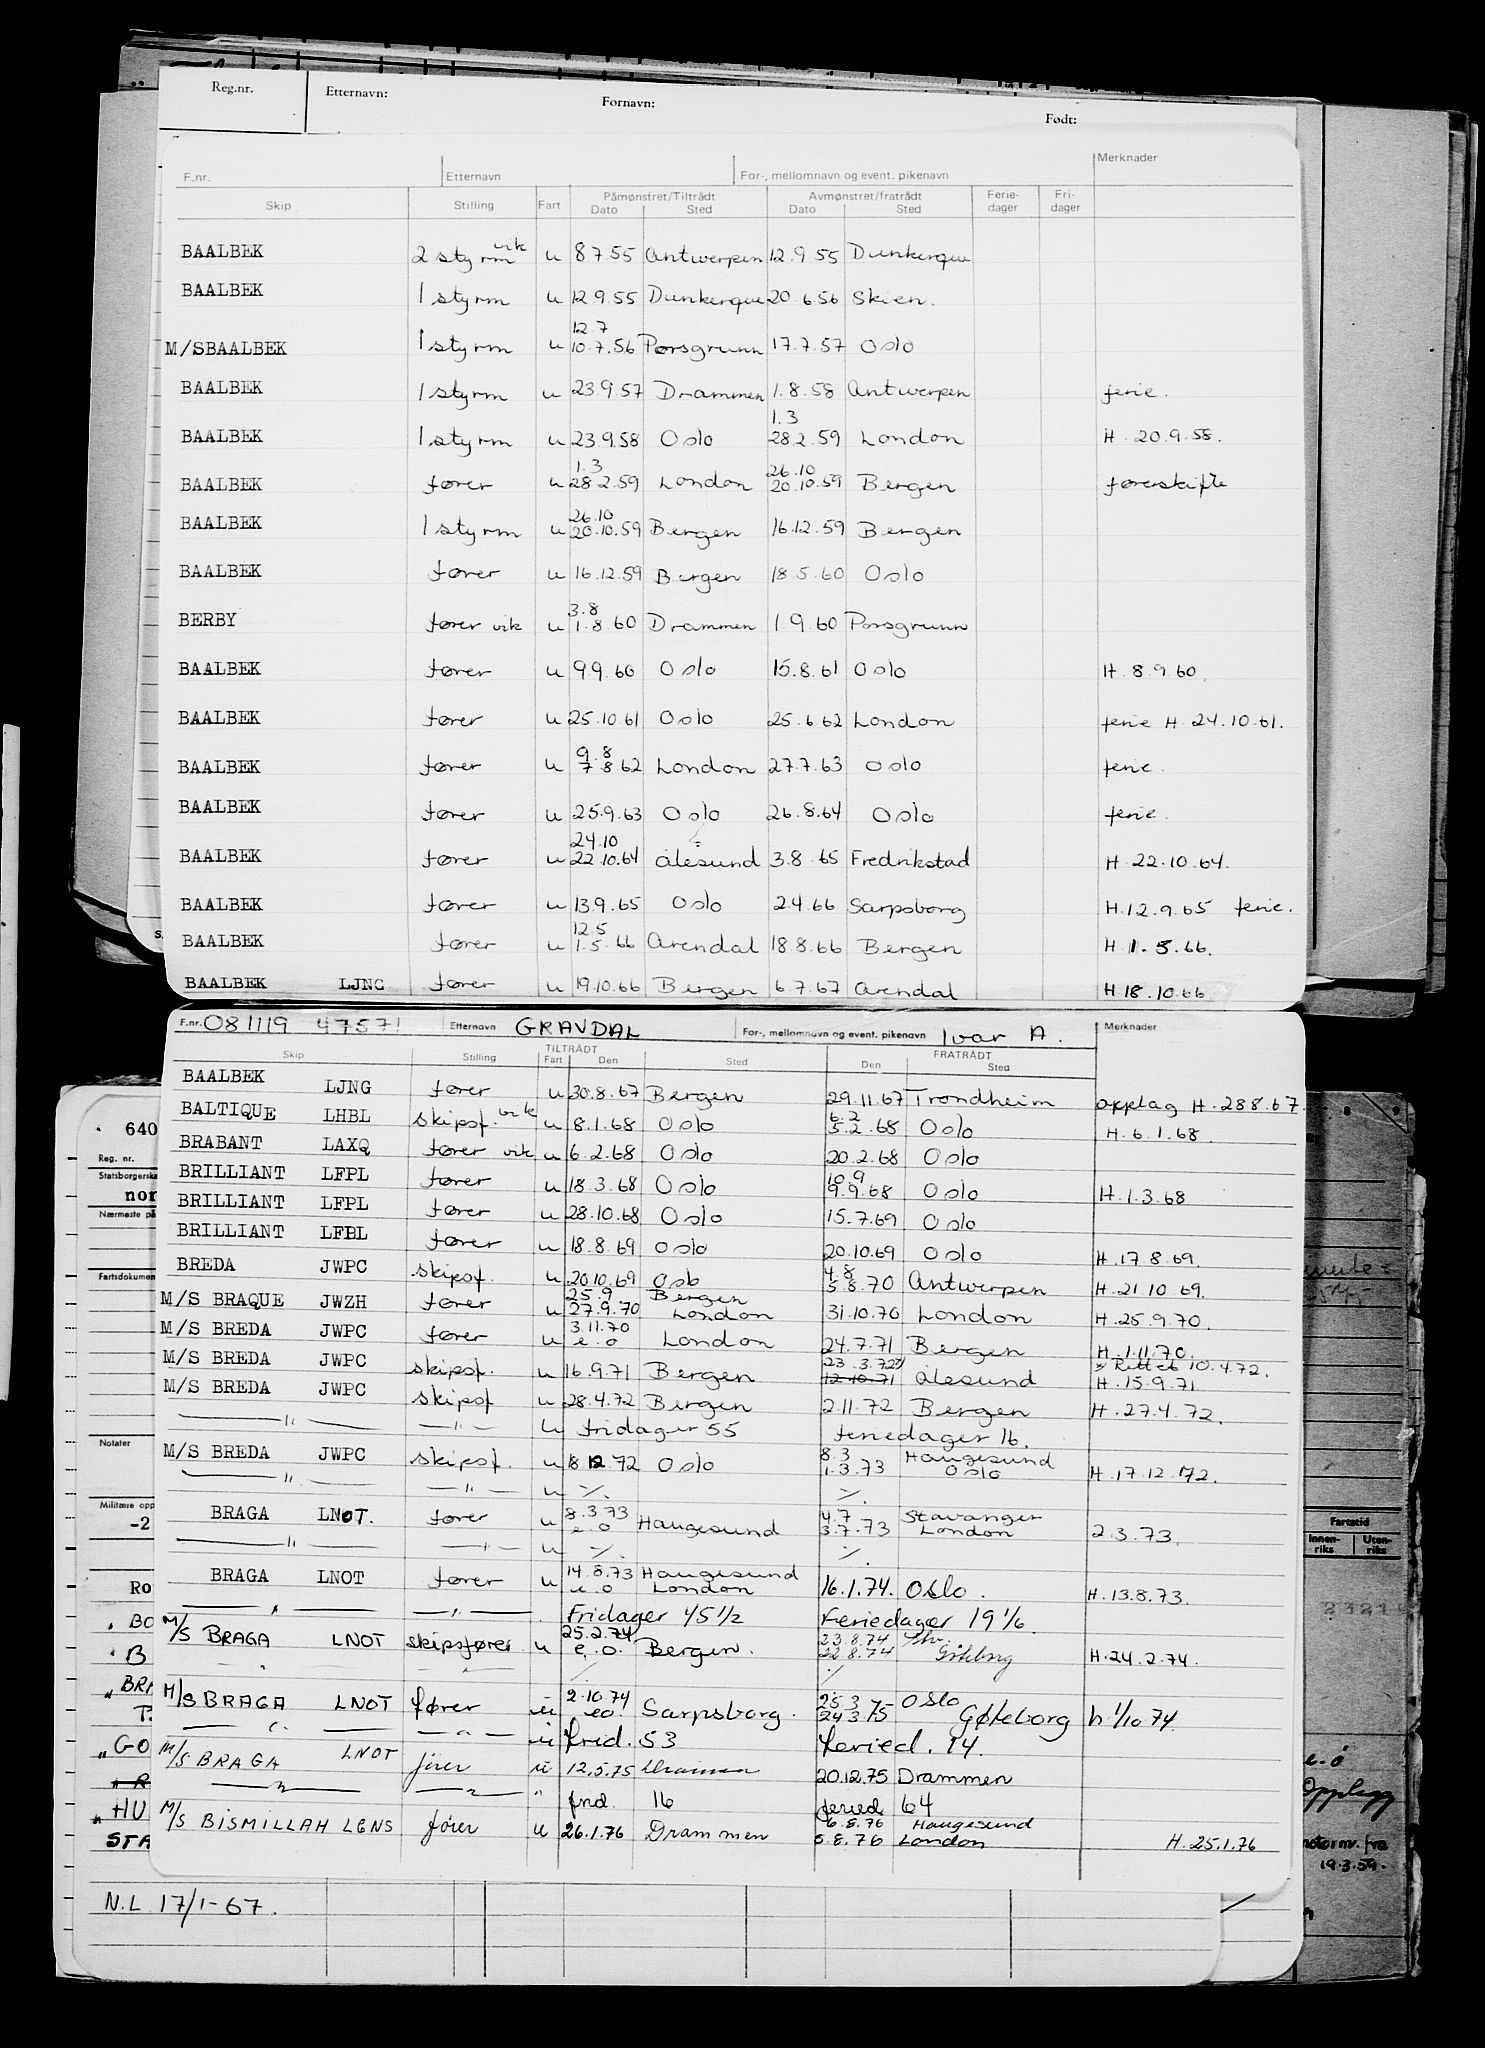 Reg.nr. Etternavn: Fornavn: Født:
F.nr. Etternavn For-, mellomnavn og event. pikenavn Merknader
Skip Stilling Fart Påmønstret/Tiltrådt Dato Sted Avmønstret/fratrådt Dato Sted Ferie-dager Fri-dager
BAALBEK 2 styrm vik u 8 7.55 Antwerpen 12.9 55 Dunkerque
BAALBEK 1 styrm u 12 9.55 Dunkerque 20.6.56 Skien.
12.7
M/SBAALBEK 1 styrm u 10.7.56 Porsgrunn 17.7.57 Oslo
BAALBEK 1 styrm u 23.9.57 Drammen 1.8.58 Antwerpen ferie.
1.3
BAALBEK 1 styrm u 23.9.58 Oslo 28.2.59 London H. 20.9.58.
1.3 26.10
BAALBEK fører u 28 2.59 London 20.10.59 Bergen førerskifte
26.10
BAALBEK 1 styrm u 20.10.59 Bergen 16.12.59 Bergen
BAALBEK fører u 16.12.59 Bergen 18.5.60 Oslo
3.8
BERBY fører vik u 1.8 60 Drammen 1.9.60 Porsgrunn
BAALBEK fører u 9.9.60 Oslo 15.8.61 Oslo H.8.9.60.
BAALBEK fører u 25.10 61 Oslo 25.6.62 London ferie H.24.10.61.
9.8
BAALBEK fører u 7.8 62 London 27.7.63 Oslo ferie.
BAALBEK fører u 25.9.63 Oslo 26.8.64 Oslo ferie.
24.10
BAALBEK fører u 22.10.64 Ålesund 3.8.65 Fredrikstad H.22.10.64.
BAALBEK fører u 13.9.65 Oslo 2.4.66 Sarpsborg H.12.9.65 ferie.
12.5
BAALBEK fører u 1.5.66 Arendal 18.8.66 Bergen H.1.5.66.
BAALBEK LJNG fører u 19.10.66 Bergen 6.7.67 Arendal H18.10.66
F.nr. 081119 47571 Etternavn GRAVDAL For-, mellomnavn og event. pikenavn Ivar A. Merknader
Skip Stilling TILTRÅDT Fart Den Sted FRATRÅDT Den Sted
BAALBEK LJNG fører u 30.8.67 Bergen 29.11.67 Trondheim opplag H.28 8.67.
6.2
BALTIQUE LHBL skipsf. vik u 8.1.68 Oslo 5.2.68 Oslo H.6.1.68.
BRABANT LAXQ fører vik u 6.2.68 Oslo 20.2.68 Oslo
10.9
BRILLIANT LFPL fører u 18.3.68 Oslo 9.9.68 Oslo H.1.3.68
BRILLIANT LFPL fører u 28.10.68 Oslo 15.7.69 Oslo
BRILLIANT LFBL fører u 18.8.69 Oslo 20.10.69 Oslo H.17 8.69.
4.8
BREDA JWPC skipsf. u 20 10.69 Oslo 5.8.70 Antwerpen H.21 10 69.
25.9 Bergen
M/S BRAQUE JWZH fører u 27.9.70 London 31.10.70 London H.25.9.70.
3.11.70
M/S BREDA JWPC fører u e.o London 24.7.71 Bergen H.1.11.70.
23.3.72 x) x Rettet 10.4.72.
M/S BREDA JWPC skipsf. u 16.9.71 Bergen 12.10.71 Ålesund H.15.9.71
M/S BREDA JWPC skipsf u 28.4.72 Bergen 2.11.72 Bergen H.27.4.72.
— " — — " — u fridager 55 feriedager 16.
8.3 Haugesund
M/S BREDA JWPC skipsf. u 18 12 72 Oslo 1.3.73 Oslo H.17.12.72.
— " — — " — u ./. ./.
8.3.73 4.7 Stavanger
BRAGA LNOT. fører u e.o Haugesund 3.7.73 London 2.3.73.
— " — — " — u ./. ./.
14.8.73 Haugesund
BRAGA LNOT fører u e.o London 16.1.74. Oslo. H.13.8.73.
— " — — " — Fridager 45 1/2 Feriedager 19 1/6
25.2.74 23.8.74
M/S BRAGA LNOT skipsfører u e.o. Bergen. 22.8.74 Göteborg H.24.2.74.
2.10.74 25.3 Oslo
M/S BRAGA LNOT fører u eo. Sarpsborg. 24 3 75 Gøteborg h 1/10 74.
— " — — " — u frid. 53 feried. 14.
M/S BRAGA LNOT fører u 12.5.75 Drammen 20.12.75 Drammen
— " — — " — " frid. 16 feried 64
6.8.76 Haugesund
M/S BISMILLAH LENS fører u 26.1.76 Drammen 5.8.76 London H.25.1.76
640
Reg. nr.
Statsborgerska
nor
Nærmeste på
Fartsdokumen
Notater
Militære opp
-2
Ro
BO
B
BRI
T.
GO
HU
STA
Fartstid
Innen-riks Uten-riks
23214
e.ø
Opplegg
19.3.59.
N.L. 17/1-67.